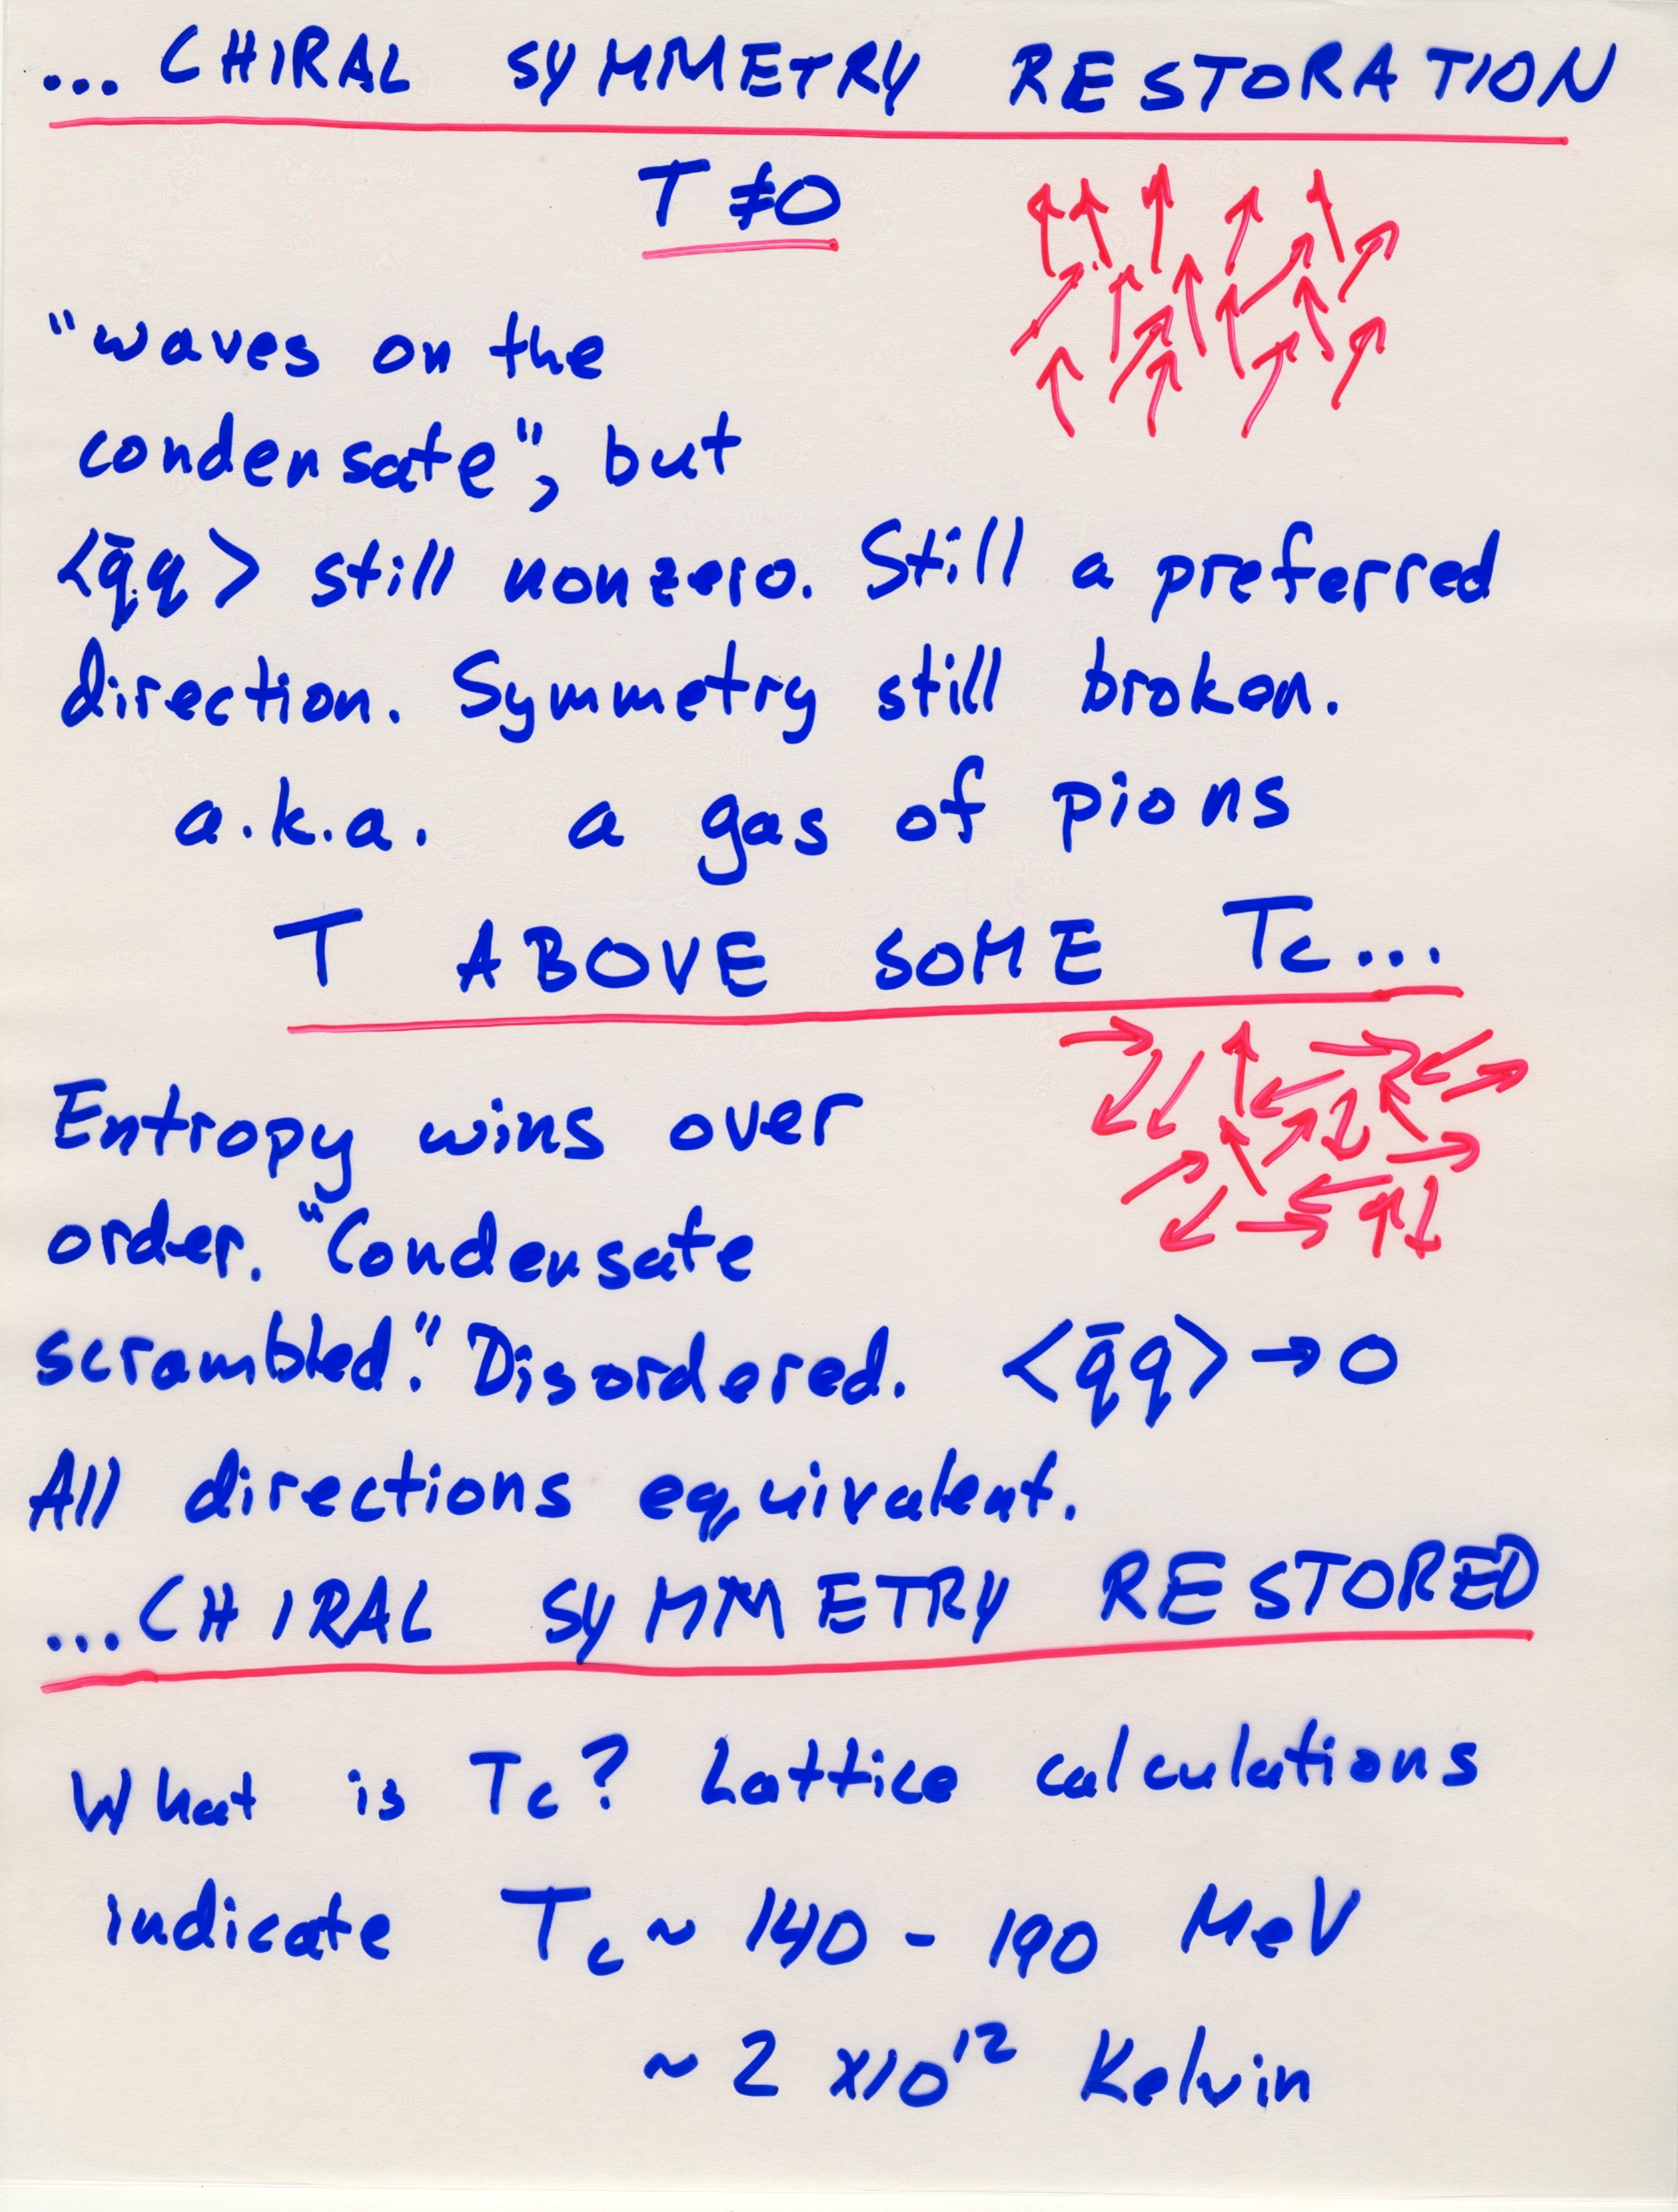 ... CHIRAL SYMMETRY RESTORATION
T ≠ 0
"waves on the
condensate", but
<q̄q> still nonzero. Still a preferred
direction. Symmetry still broken.
a.k.a. a gas of pions
T ABOVE SOME Tc...
Entropy wins over
order. "Condensate
scrambled." Disordered. <q̄q> → 0
All directions equivalent.
...CHIRAL SYMMETRY RESTORED
What is Tc? Lattice calculations
indicate Tc ~ 140 - 190 MeV
~ 2 x10¹² Kelvin